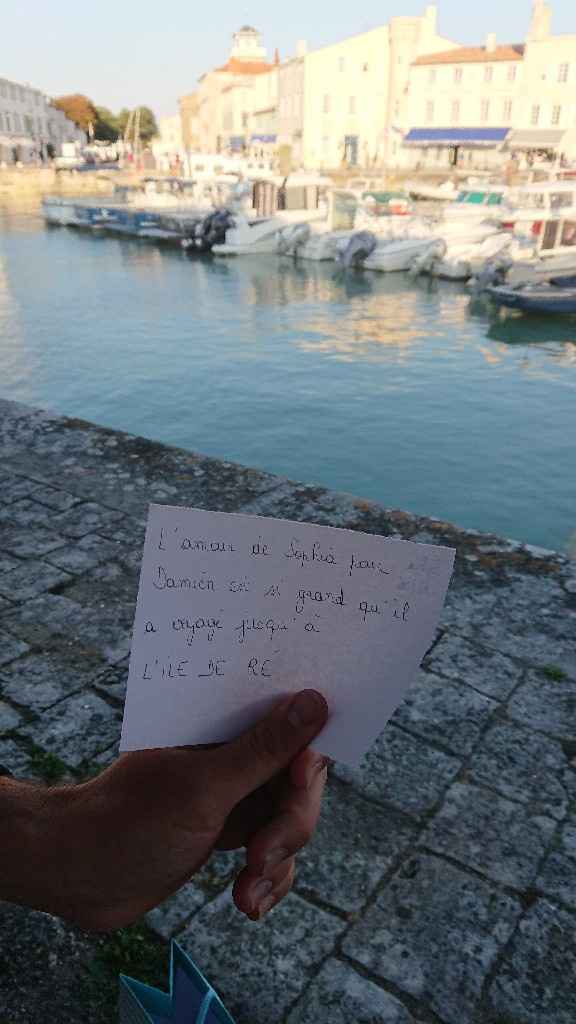 L'amour de Sophia pour
Damien est si grand qu'il
a voyagé jusqu'à
L'ILE DE RÉ